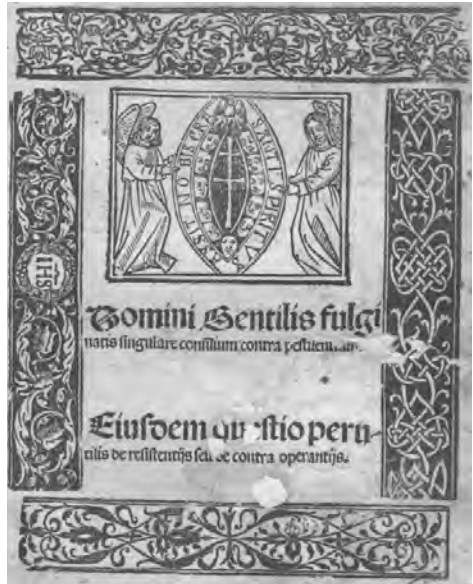 ADSIT NOBIS GRA SANTI SPIRITV
IHS
Domini Gentilis fulgi
natis singulare consilium contra
Eiusdem questio peru-
tilis de resistentijs seu de contra operantijs.